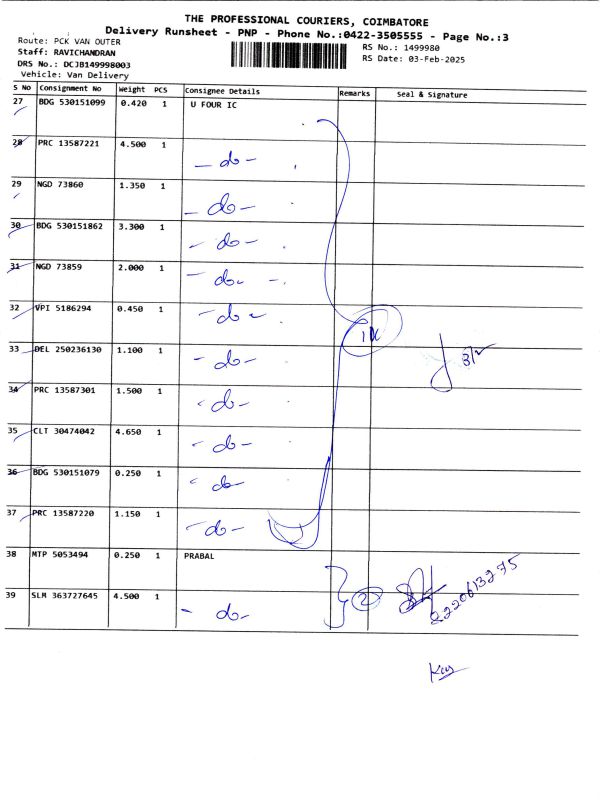 THE PROFESSIONAL COURIERS, COIMBATORE
Delivery Runsheet - PNP - Phone No.:0422-3505555 - Page No.:3
Route: PCK VAN OUTER
RS No.: 1499980
Staff: RAVICHANDRAN
RS Date: 03-Feb-2025
DRS No.: DCJB149998003
Vehicle: Van Delivery
S No Consignment No Weight PCS Consignee Details Remarks Seal & Signature
27 BDG 530151099 0.420 1 U FOUR IC
28 PRC 13587221 4.500 1 - do -
29 NGD 73860 1.350 1 - do -
30 BDG 530151862 3.300 1 - do -
31 NGD 73859 2.000 1 - do -
32 VPI 5186294 0.450 1 - do -
33 DEL 250236130 1.100 1 - do -
34 PRC 13587301 1.500 1 - do -
35 CLT 30474042 4.650 1 - do -
36 BDG 530151079 0.250 1 - do -
37 PRC 13587220 1.150 1 - do -
38 MTP 5053494 0.250 1 PRABAL
39 SLM 363727645 4.500 1 - do -
2